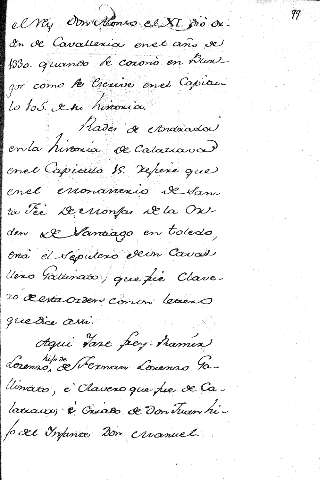 99
el Rey Don Alonso el XI. dió or-
den de Cavalleria en el año de
1330. quando se coronó en Bur-
gos como se escrive en el Capitu-
lo 105. de su historia.
Rades de Andrada
en la historia de Calatrava
en el Capitulo 15. refiere que
en el Monasterio de San-
ta Feé de Monjas de la Or-
den de Santiago en Toledo,
está el sepulcro de un Caval-
llero Gallinato, que fue Clave-
ro de esta orden con un letrero
que dice assi.
Aqui Yaze frey Ramir
Lorenzo, hijo de Fernan Lorenzo Ga-
llinato, é Clavero que fue de Ca-
latrava é Criado de Don Juan hi-
jo del Infante Don Manuel.